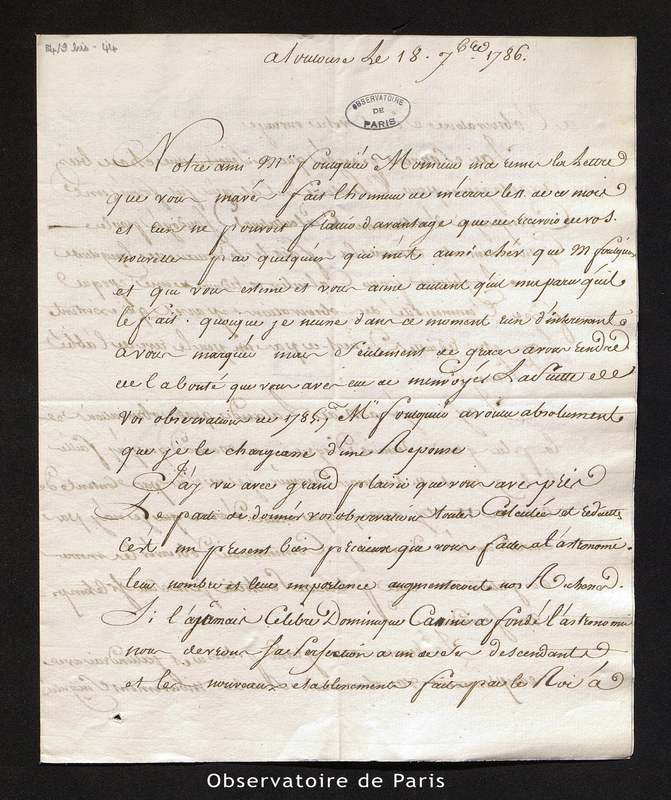 84/9 bis - 44
a Toulouse Le 18. 7bre 1786.
OBSERVATOIRE
DE
PARIS
Notre ami Mr fouquié Monsieur ma remis la Lettre
que vous mavés fait lhonneur de mecrire le de ce mois
et rien ne pouvoit flatter d'avantage que de recevoir de vos
nouvelles par quelqu'un qui m'est aussi chér que Mr fouquié
et que vous estime et vous aime autant qu'il ma paru qu'il
le fait. quoique je naie dans ce moment rien d'interessant
a vous marquer mais seulement de graces a vous rendre
de la bonté que vous aves eue de m'envoyér La suitte de
vos observation de 1785. Mr fouquié a voulu absolument
que je le chargeasse d'une Reponse
J'ay vu avec grand plaisir que vous aves pris
Le parti de donnér vos observations toutes Calculées et reduittes
c'est un present bien precieux que vous faites a l'astronomie.
leur nombre et leur importance augmenteront nos Richesses.
Si l'ajamais Célébre Dominique Cassini a fondé l'astronomie
nous devrons sa Perfection a un de ses descendants
et les nouveaux etablissements faits par le Roi à
Observatoire de Paris